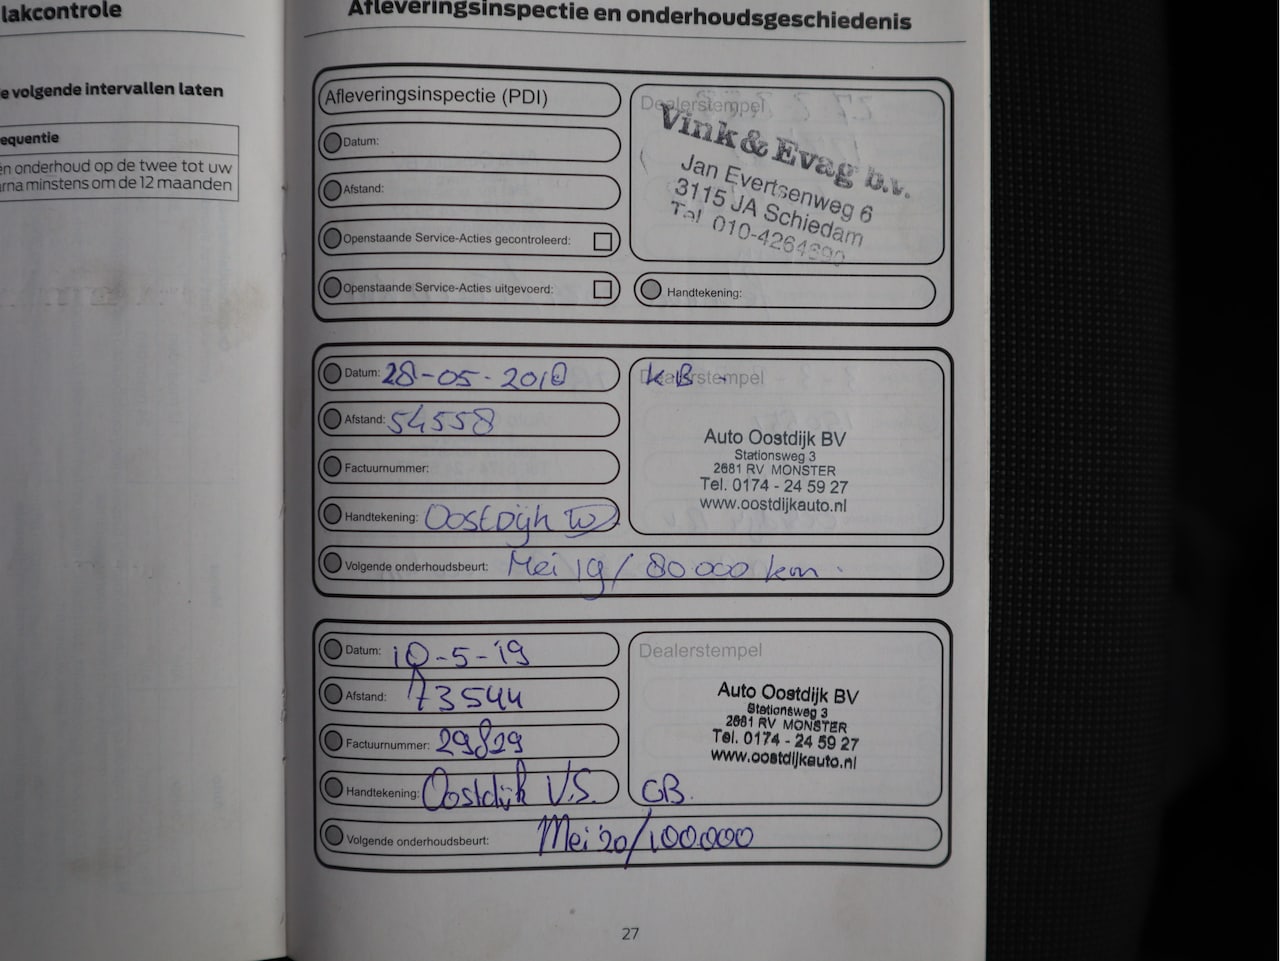 lakcontrole
e volgende intervallen laten
equentie
en onderhoud op de twee tot uw
arna minstens om de 12 maanden
Afleveringsinspectie en onderhoudsgeschiedenis
Afleveringsinspectie (PDI)
Datum:
Afstand:
Openstaande Service-Acties gecontroleerd:
Openstaande Service-Acties uitgevoerd:
Dealerstempel
Vink & Evag b.v.
Jan Evertsenweg 6
3115 JA Schiedam
Tel. 010-4264890
Handtekening:
Datum: 28-05-2018
Afstand: 54558
Factuurnummer:
Handtekening: Oostdijk
Volgende onderhoudsbeurt: Mei 19/80000 km.
Dealerstempel
KB -
Auto Oostdijk BV
Stationsweg 3
2681 RV MONSTER
Tel. 0174 - 24 59 27
www.oostdijkauto.nl
Datum: 10-5-'19
Afstand: 73544
Factuurnummer: 29829
Handtekening: Oostdijk V.S.
Volgende onderhoudsbeurt: Mei '20/100.000
Dealerstempel
Auto Oostdijk BV
Stationsweg 3
2681 RV MONSTER
Tel. 0174 - 24 59 27
www.oostdijkauto.nl
GB.
27